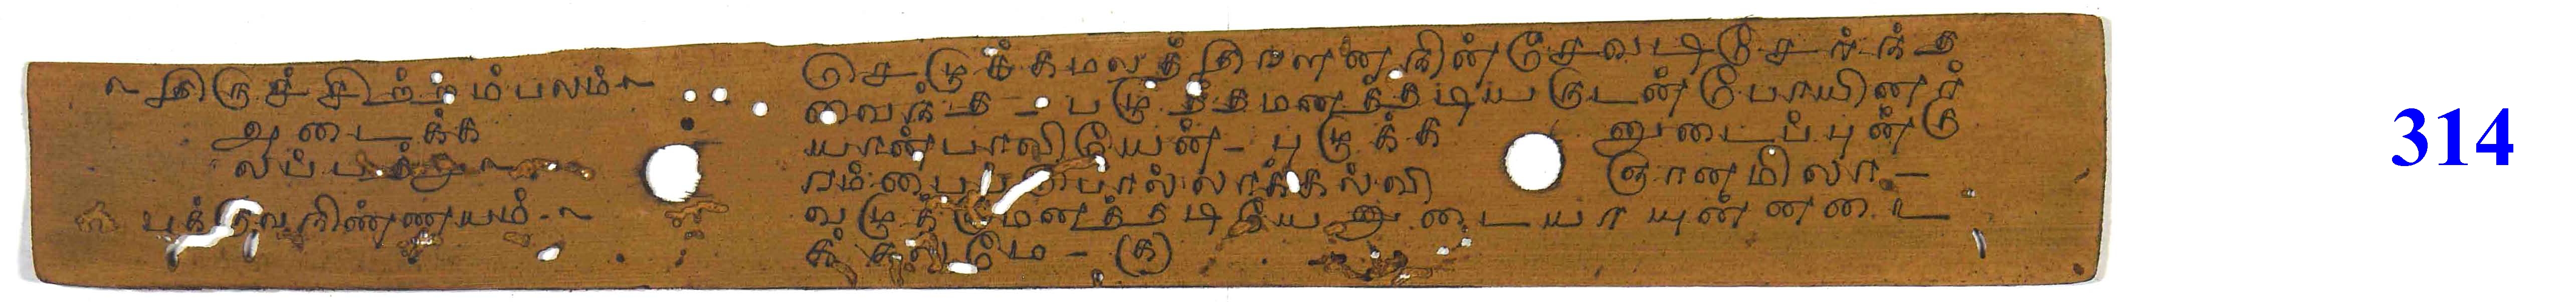 ~ திருச்சிற்றம்பலம் ~
அடைக்க
லப்பத்து ~
பக்குவநிண்ணயம் - ~
செழுக்கமலத்திரளனநின்சேவடிசேர்ந்த
வைந்த - பழுத்தமனத்தடியருடன்போயினர்
யான்பாவியேன் - புழுக்க ணுடைப்புன்கு
ரம்பைப்பொல்லாக்கல்வி ஞானமிலா -
வழுக்குமனத்தடியேனுடையாயுன்னடை
க்கலமே - (க)
314